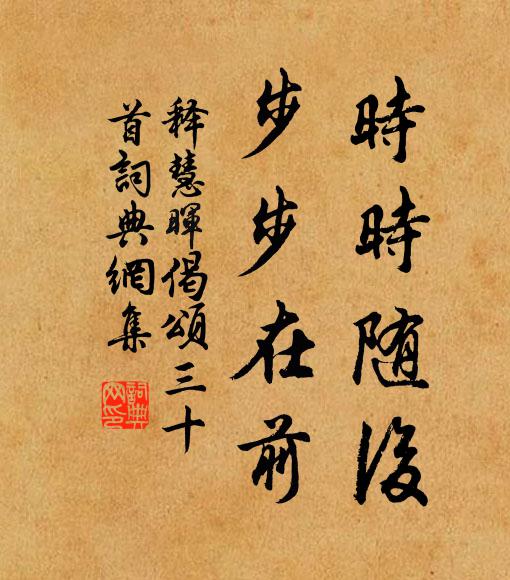 時時随後
步步在前
释慧暉偈頌三十
首詞典網集
詞典网印